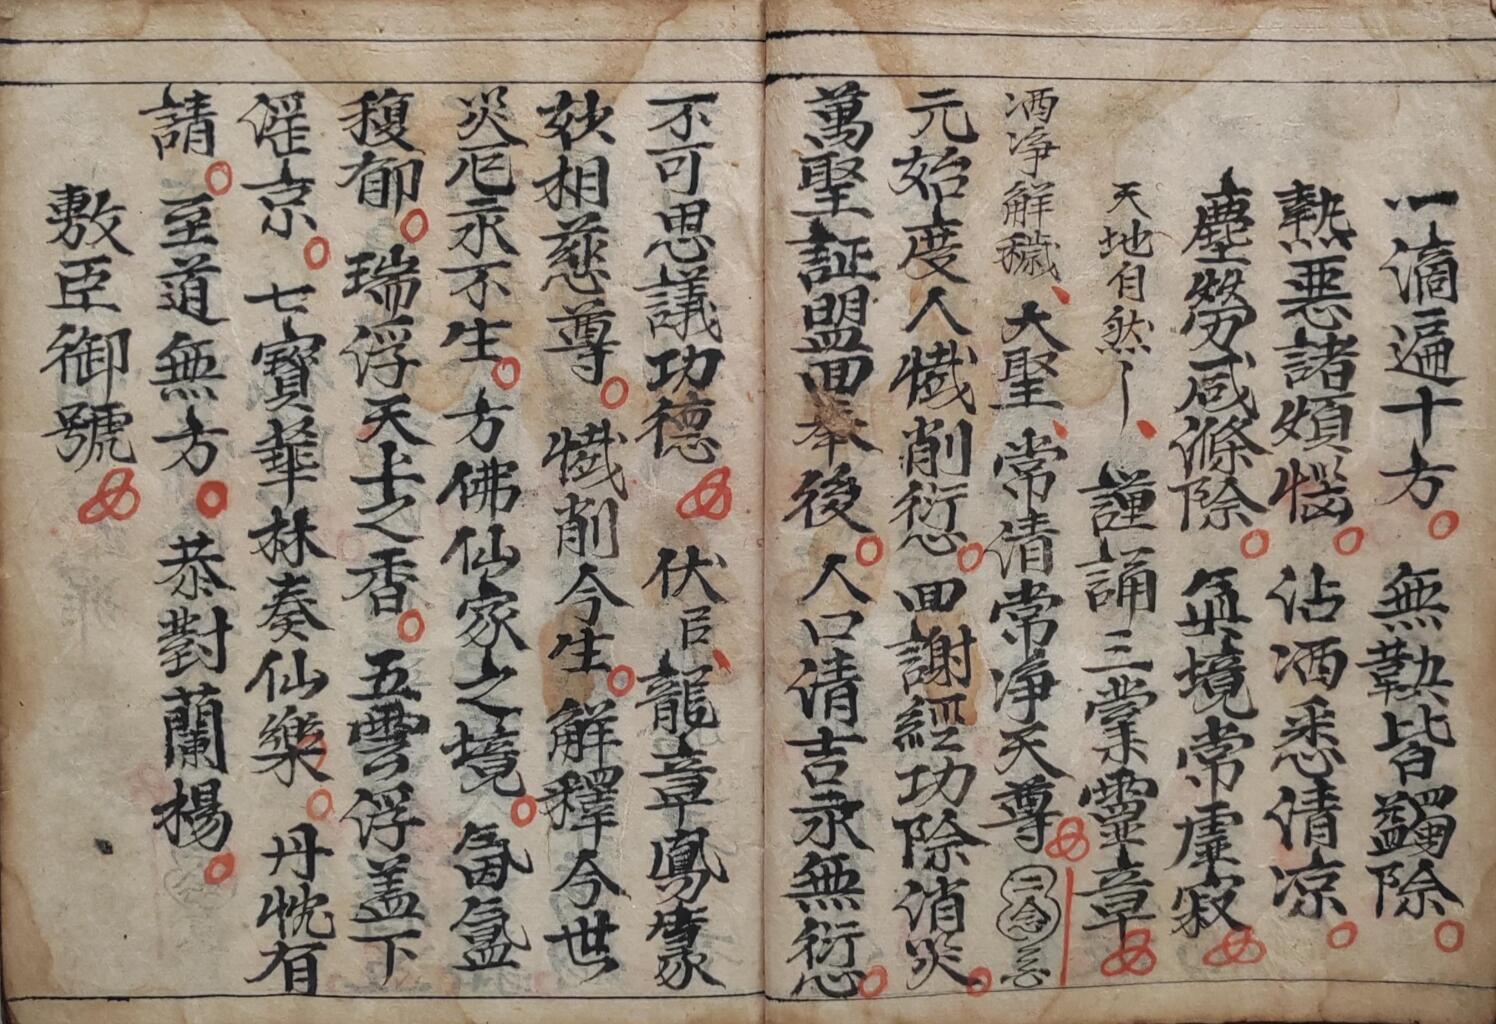 一滴遍十方 無鞅皆蠲除
熱惡諸煩惱 沾洒悉清凉
塵勞咸滌除 無境常虛寂
天地自然 謹誦三業靈章
洒淨解穢 大聖 常清常淨天尊 二念
元始度人懺削衍愆 回謝經功除消災
萬聖証盟回奉後 人口清吉永無衍愆
不可思議功德 伏以 龍章鳳篆
妙相慈尊 懺削今生 解釋今世
災厄永不生 方佛仙家之境 氤氳
馥郁 瑞浮天上之香 五雲浮盖下
催京 七寶華林奏仙樂 丹忱有
請 至道無方 恭對蘭楊
敷臣御號